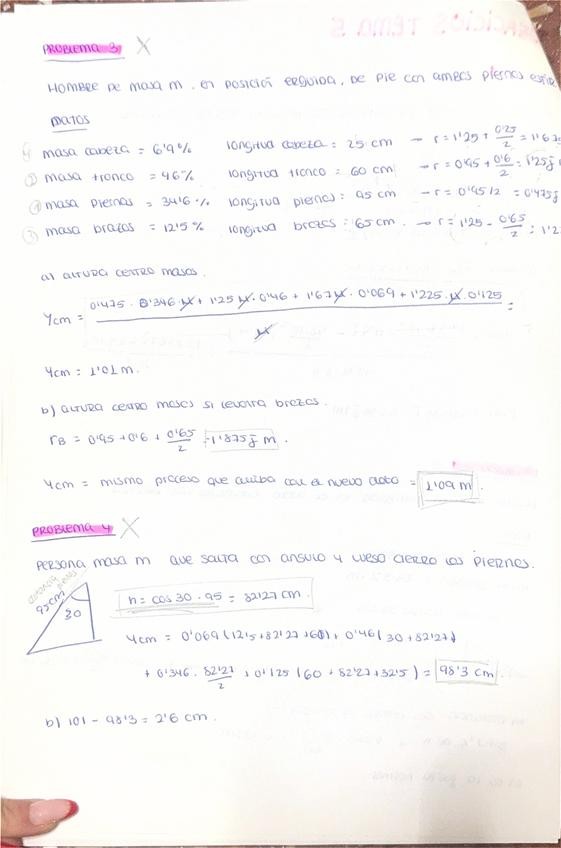 PROBLEMA 3
HOMBRE DE MASA M. EN POSICIÓN ERGUIDA, DE PIE CON AMBOS PIERNAS
DATOS
① masa cabeza = 6'9% longitud cabeza: 25 cm → r = 1'25 + 0'25/2 = 1'67
② masa tronco = 46% longitud tronco = 60 cm → r = 0'95 + 0'6/2 = 1'25
④ masa piernas = 34'6% longitud piernas: 95 cm → r = 0'95/2 = 0'475
③ masa brazos = 12'5% longitud brazos: 65 cm → r = 1'25 - 0'65/2 = 1'2
a) ALTURA CENTRO MASAS.
Ycm = 0'475 · 0'346 · M + 1'25 M · 0'46 + 1'67 M · 0'069 + 1'225 · M · 0'125 / M =
Ycm = 1'01 m.
b) ALTURA CENTRO MASES SI LEVANTA BRAZOS.
rB = 0'95 + 0'6 + 0'65/2 = 1'875 m.
Ycm = mismo proceso que arriba con el nuevo dato = 1'09 m.
PROBLEMA 4
PERSONA MASA M QUE SALTA CON ANGULO Y LUEGO CIERRO LOS PIERNES.
95 cm
30
h = cos 30 · 95 = 82'27 cm.
Ycm = 0'069 (12'5 + 82'27 + 60) + 0'46 (30 + 82'27)
+ 0'346 · 82'27/2 + 0'125 (60 + 82'27 + 32'5) = 98'3 cm
b) 101 - 98'3 = 2'6 cm.